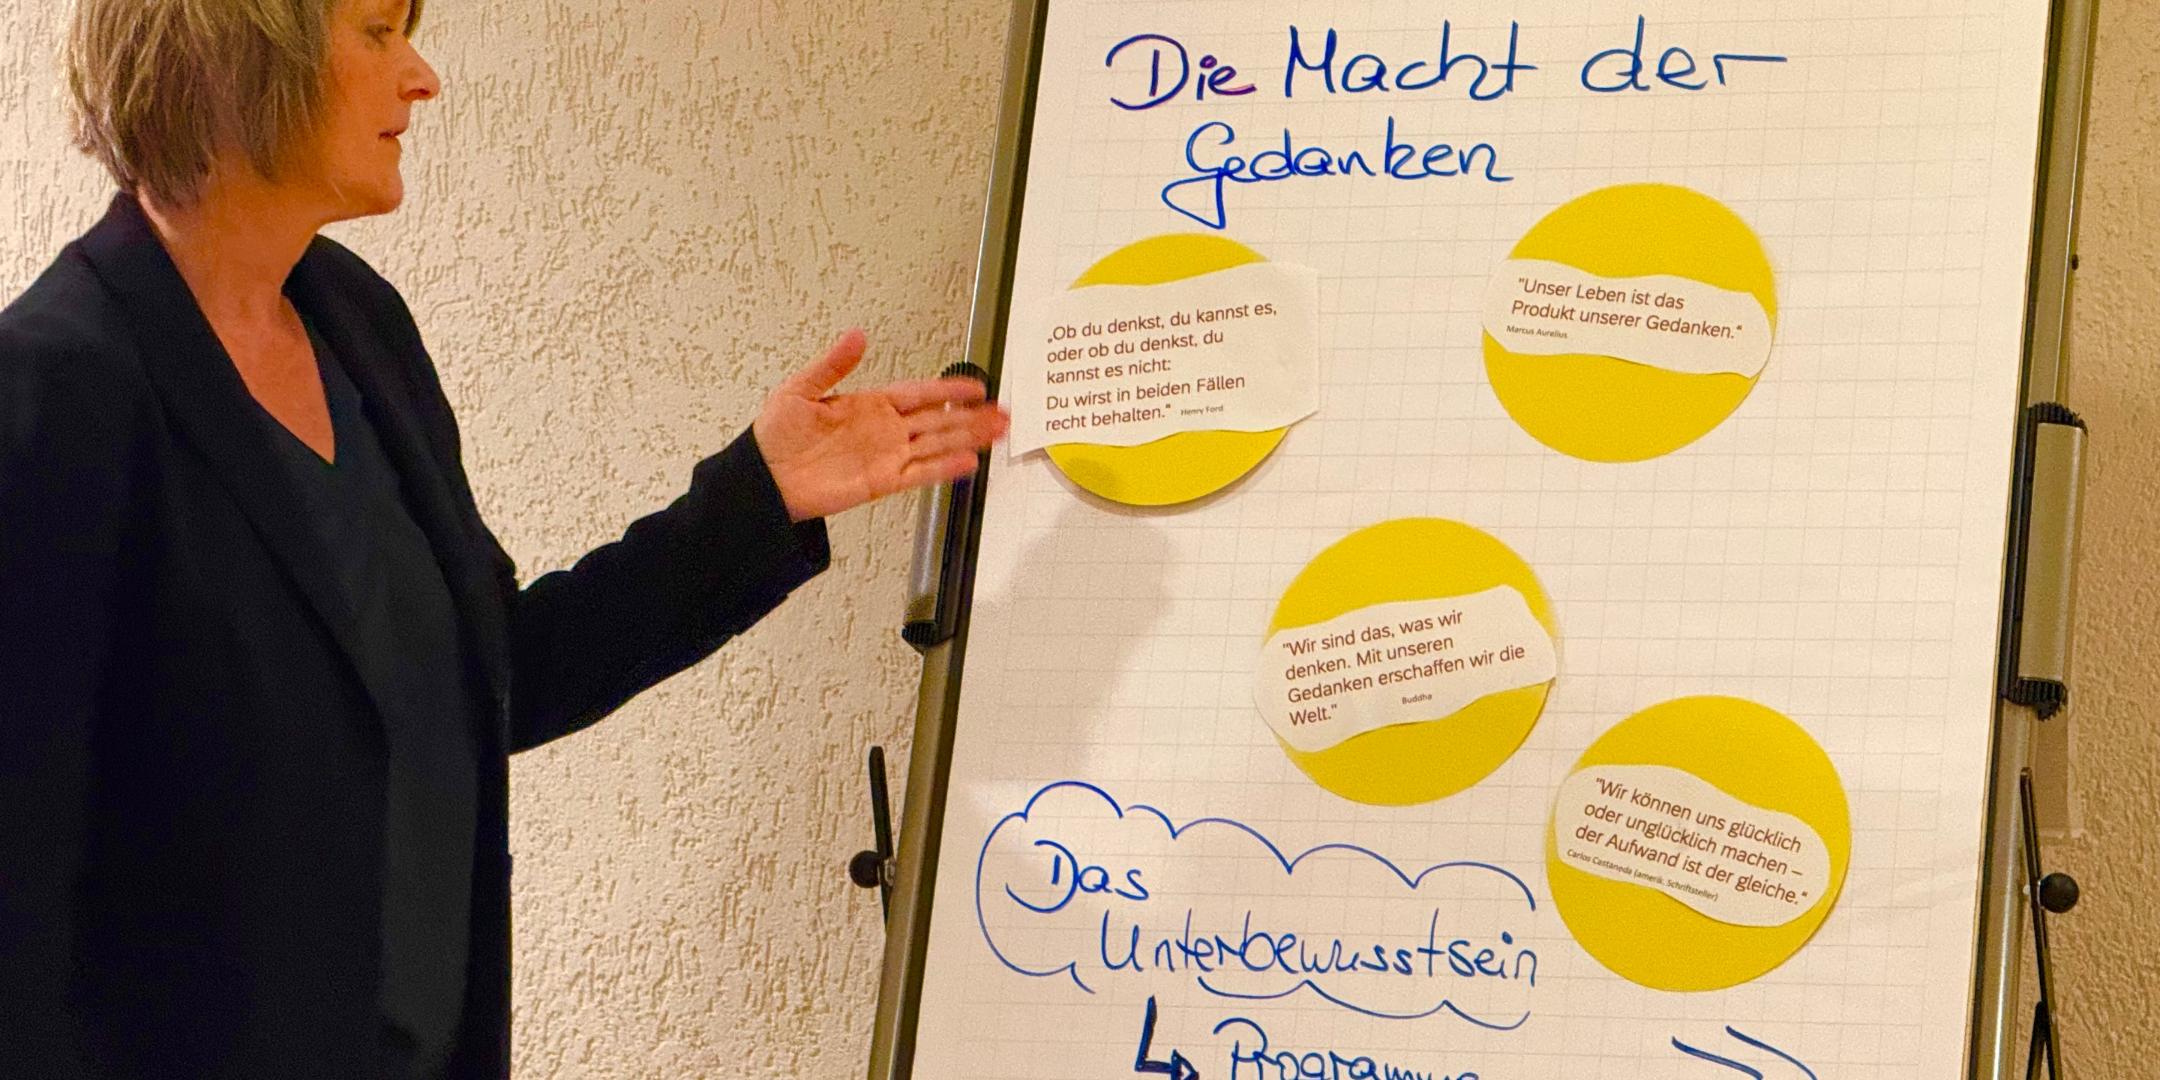 Die Macht der
Gedanken
„Ob du denkst, du kannst es,
oder ob du denkst, du
kannst es nicht:
Du wirst in beiden Fällen
recht behalten." Henry Ford
"Unser Leben ist das
Produkt unserer Gedanken."
Marcus Aurelius
"Wir sind das, was wir
denken. Mit unseren
Gedanken erschaffen wir die
Welt." Buddha
"Wir können uns glücklich
oder unglücklich machen –
der Aufwand ist der gleiche."
Carlos Castaneda (amerik. Schriftsteller)
Das
Unterbewusstsein